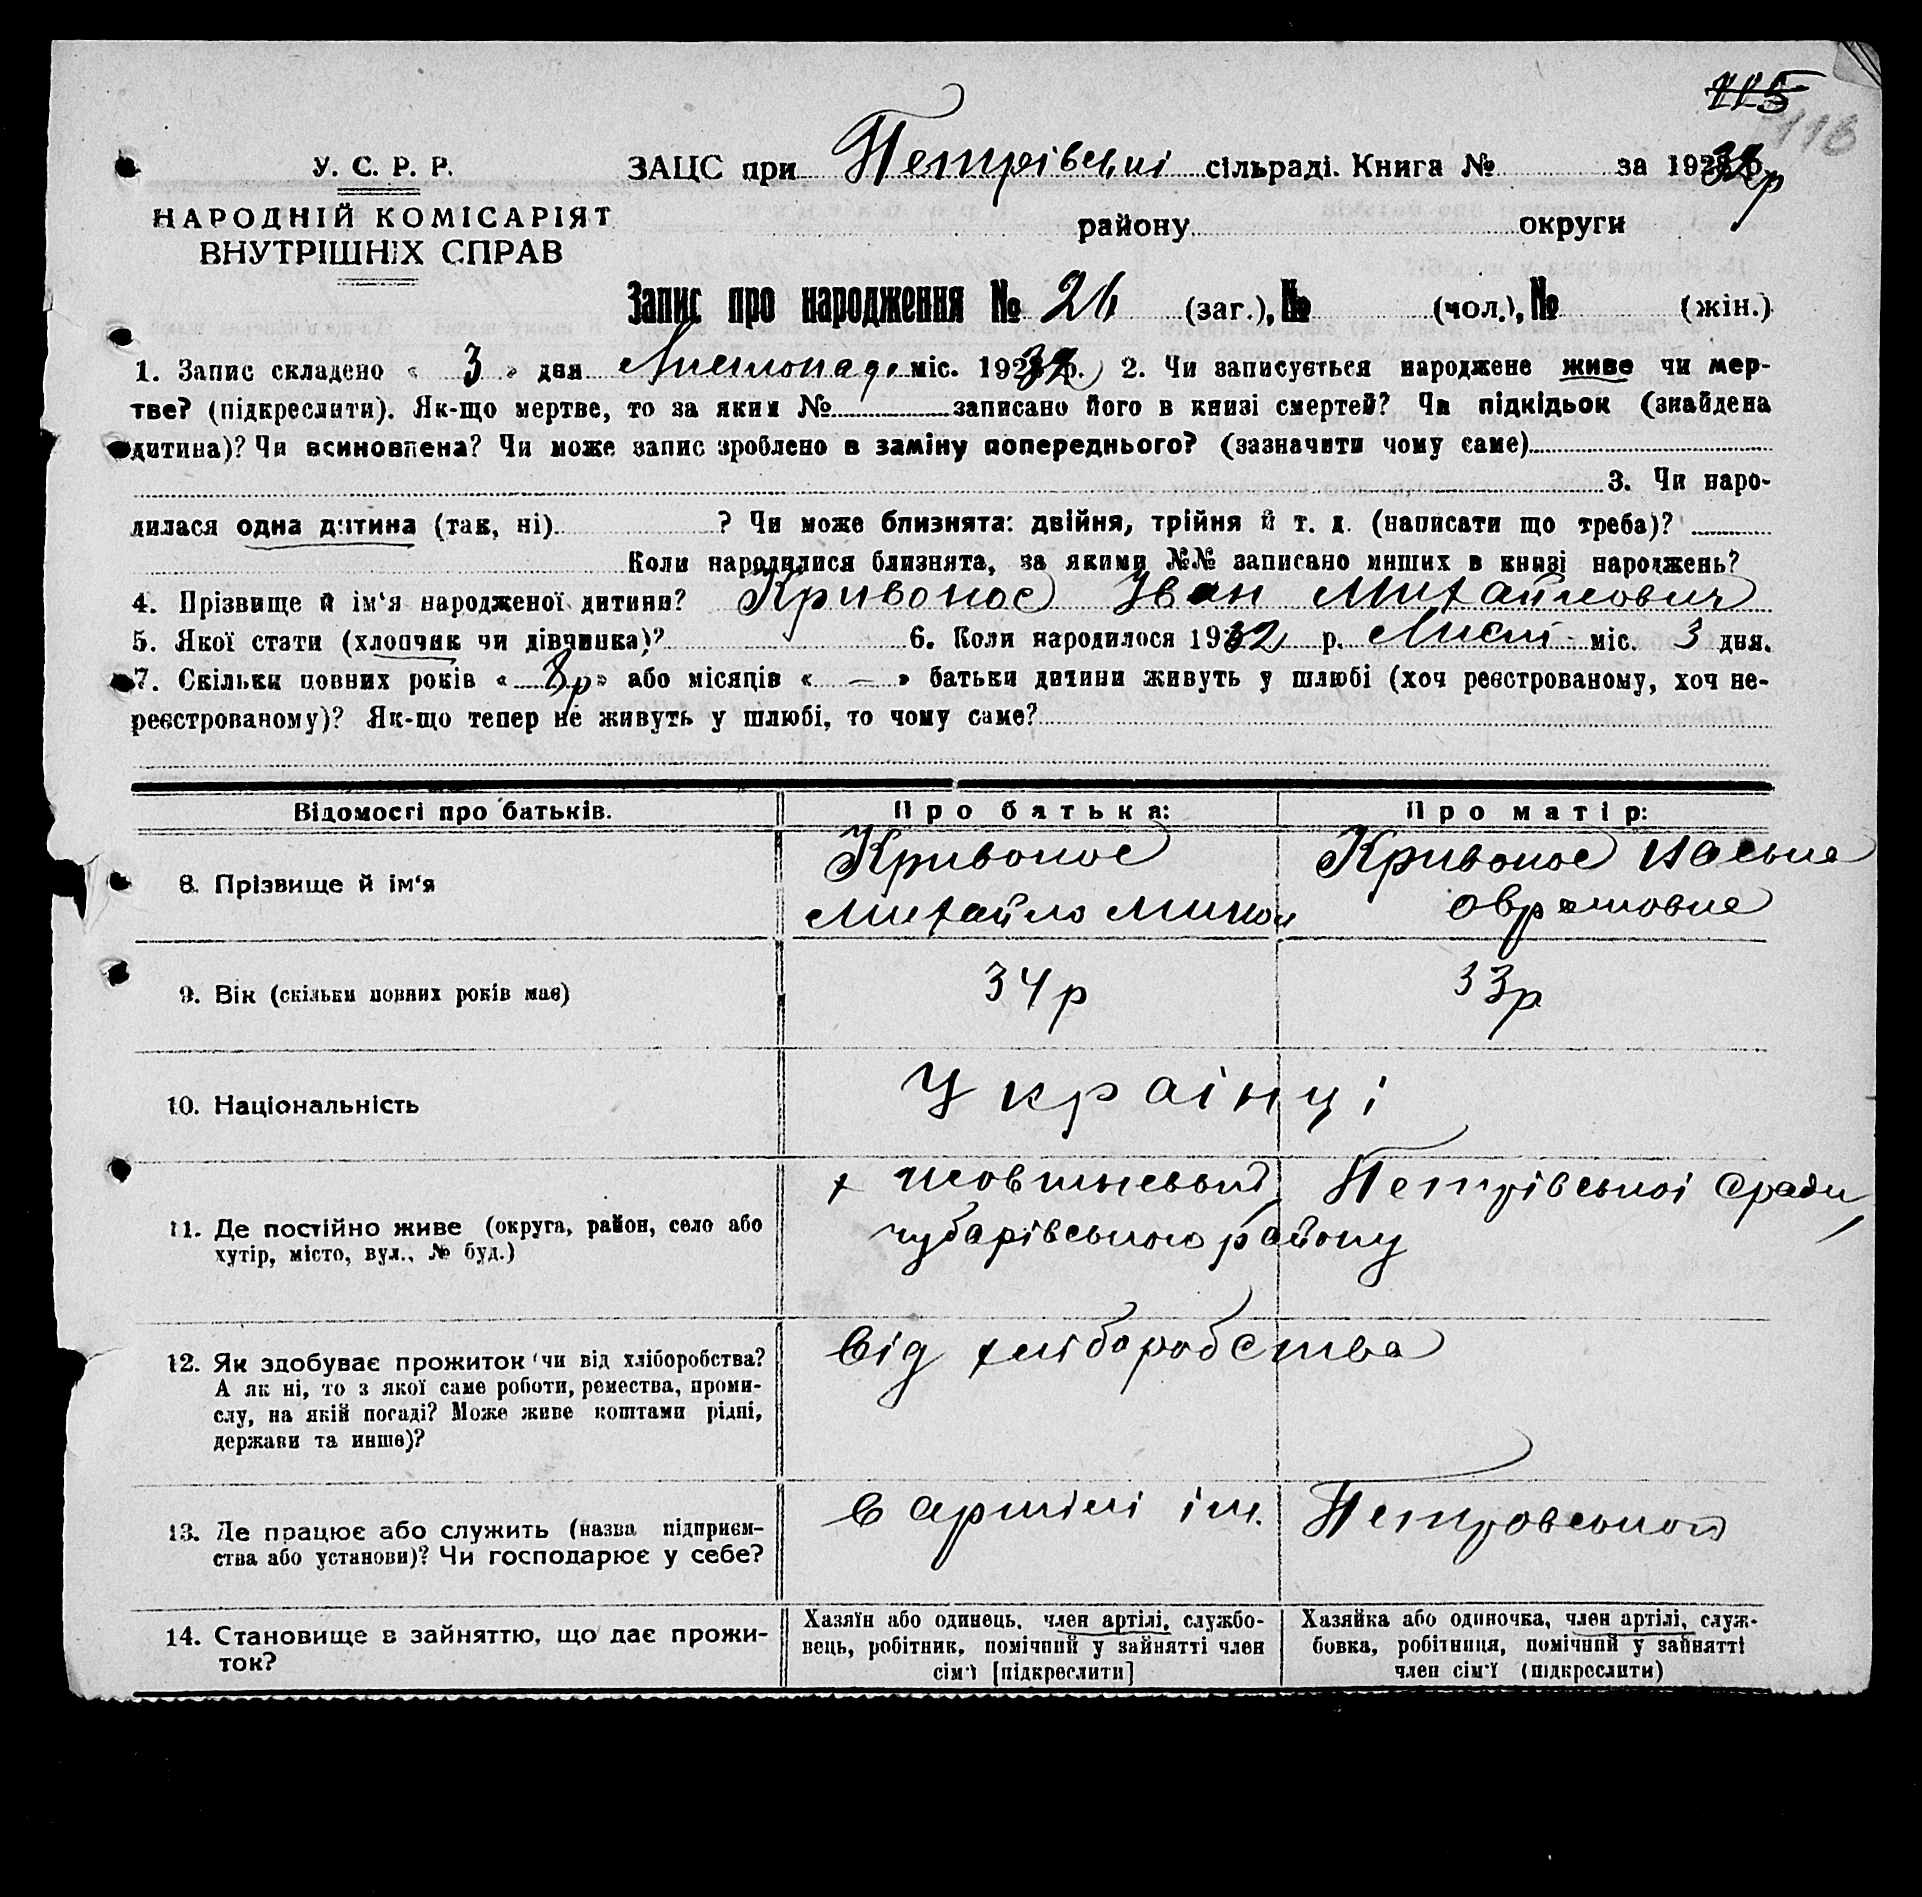 115
116
У. С. Р. Р.
НАРОДНІЙ КОМІСАРІЯТ
ВНУТРІШНІХ СПРАВ
ЗАЦС при Петрівські сільраді. Книга № за 1932р
району округи
Запис про народження № 26 (заг.), № (чол.), № (жін.)
1. Запис складено « 3 » дня Листопада міс. 1932 р. 2. Чи записується народжене живе чи мер-
тве? (підкреслити). Як-що мертве, то за яким № записано його в книзі смертей? Чи підкідьок (знайдена
дитина)? Чи всиновлена? Чи може запис зроблено в заміну попереднього? (зазначити чому саме)
3. Чи наро-
дилася одна дитина (так, ні) ? Чи може близнята: двійня, трійня й т. д. (написати що треба)?
Коли народилися близнята, за якими №№ записано инших в книзі народжень?
4. Прізвище й ім‘я народженої дитини? Кривонос Іван Михайлович
5. Якої стати (хлопчик чи дівчинка)? 6. Коли народилося 1932 р. Лист міс. 3 дня.
7. Скільки повних років « 8р » або місяців « — » батьки дитини живуть у шлюбі (хоч реєстрованому, хоч не-
реєстрованому)? Як-що тепер не живуть у шлюбі, то чому саме?
Відомості про батьків. Про батька: Про матір:
8. Прізвище й ім‘я
Кривонос
Михайло Микол
Кривонос
9. Вік (скільки повних років має) 34р 33р
10. Національність Українці
11. Де постійно живе (округа, район, село або
хутір, місто, вул., № буд.)
х Жовтневий, Петрівської Сради,
чубарівського району
12. Як здобуває прожиток чи від хліборобства?
А як ні, то з якої саме роботи, ремества, проми-
слу, на якій посаді? Може живе коштами рідні,
держави та инше)?
від хліборобства
13. Де працює або служить (назва підприєм-
ства або установи)? Чи господарює у себе?
в артілі ім. Петровського
14. Становище в зайняттю, що дає прожи-
ток?
Хазяїн або одинець, член артілі, службо-
вець, робітник, помічний у зайнятті член
сім‘ї [підкреслити]
Хазяйка або одиночка, член артілі, служ-
бовка, робітниця, помічний у зайнятті
член сім‘ї (підкреслити)